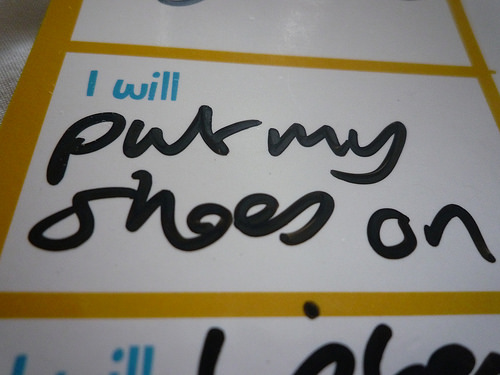 I will
put my
shoes on
I will